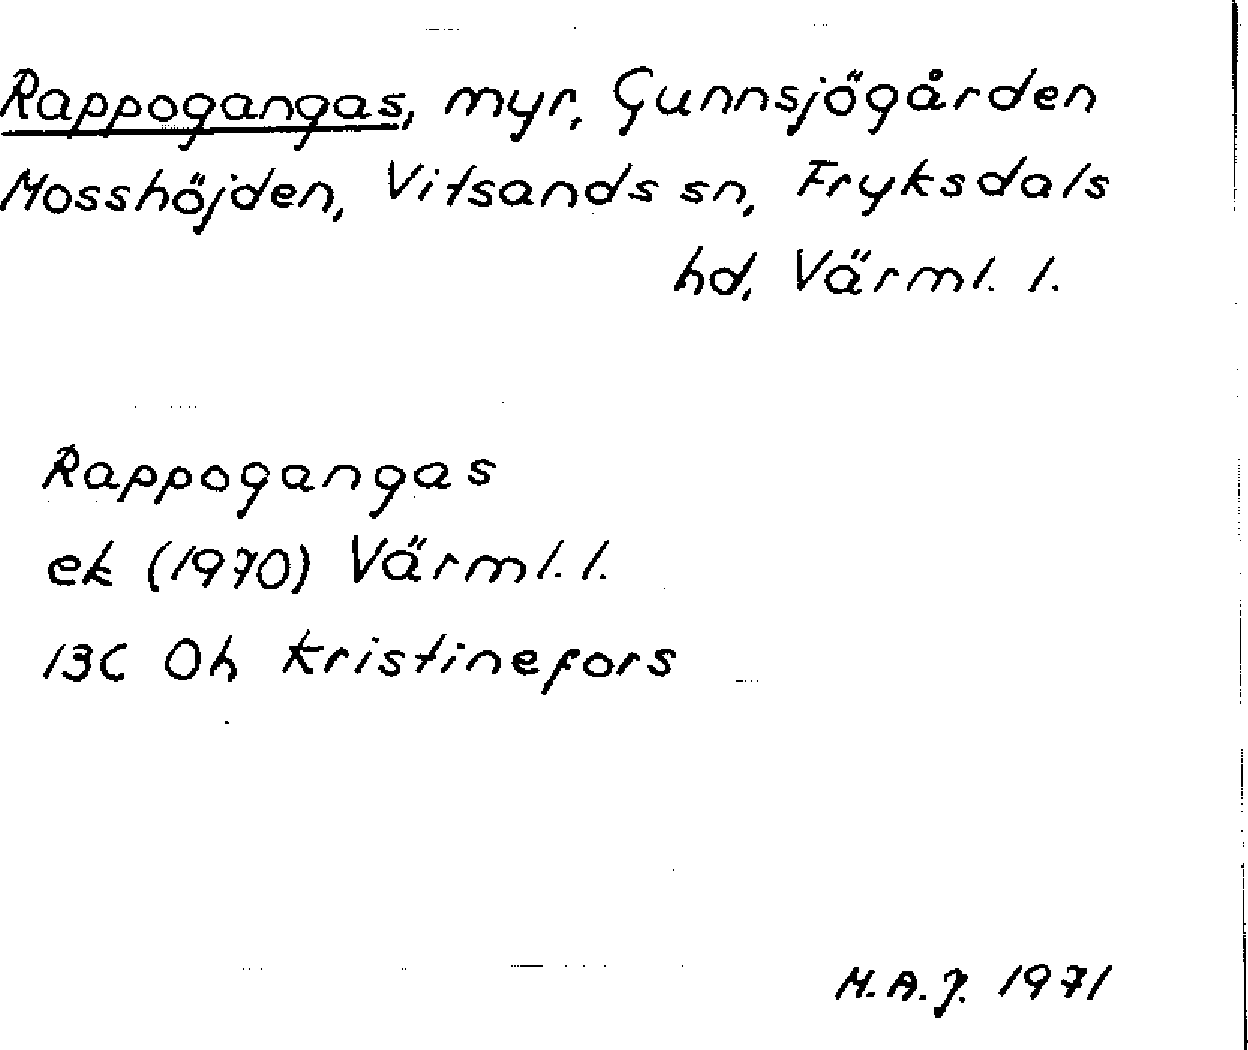 Rappogangas, myr, Gunnsjögården
Mosshöjden, Vitsands sn, Fryksdals
hd, Värml. l.
Rappogangas
ek (1970) Värml. l.
13C 0h Kristinefors
M.A.J. 1971